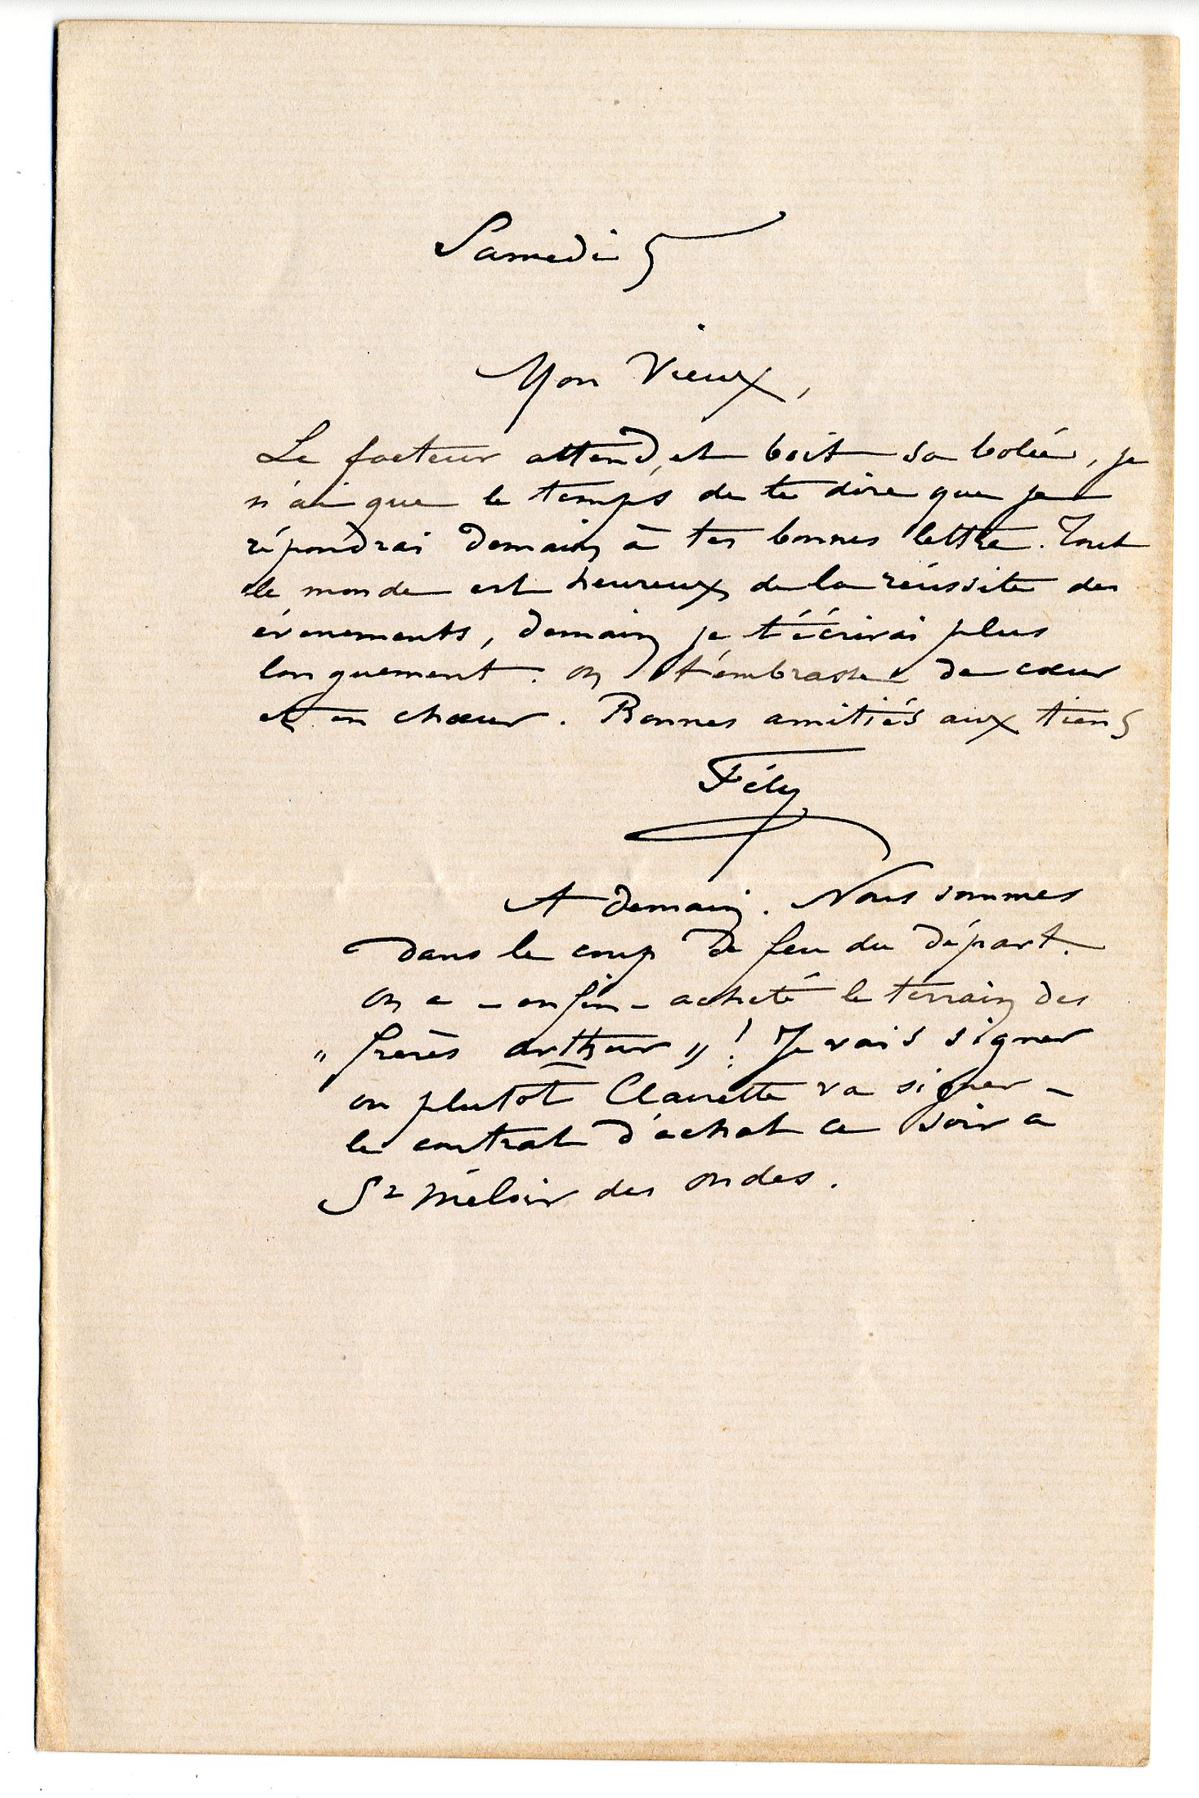 Samedi 5
Mon Vieux,
Le facteur attend, et boit sa bolée, je
n'ai que le temps de te dire que je
répondrai demain à tes bonnes lettre. Tout
le monde est heureux de la réussite des
évenements, demain je t'écrirai plus
longuement. On t'embrasse de cœur
et en chœur. Bonnes amitiés aux tiens
Fély
A demain. Nous sommes
dans le coup de feu du départ.
On a - enfin - acheté le terrain des
" frères arthur " ! Je vais signer
ou plutot Clairette va signer -
le contrat d'achat ce soir à
St Méloir des ondes.